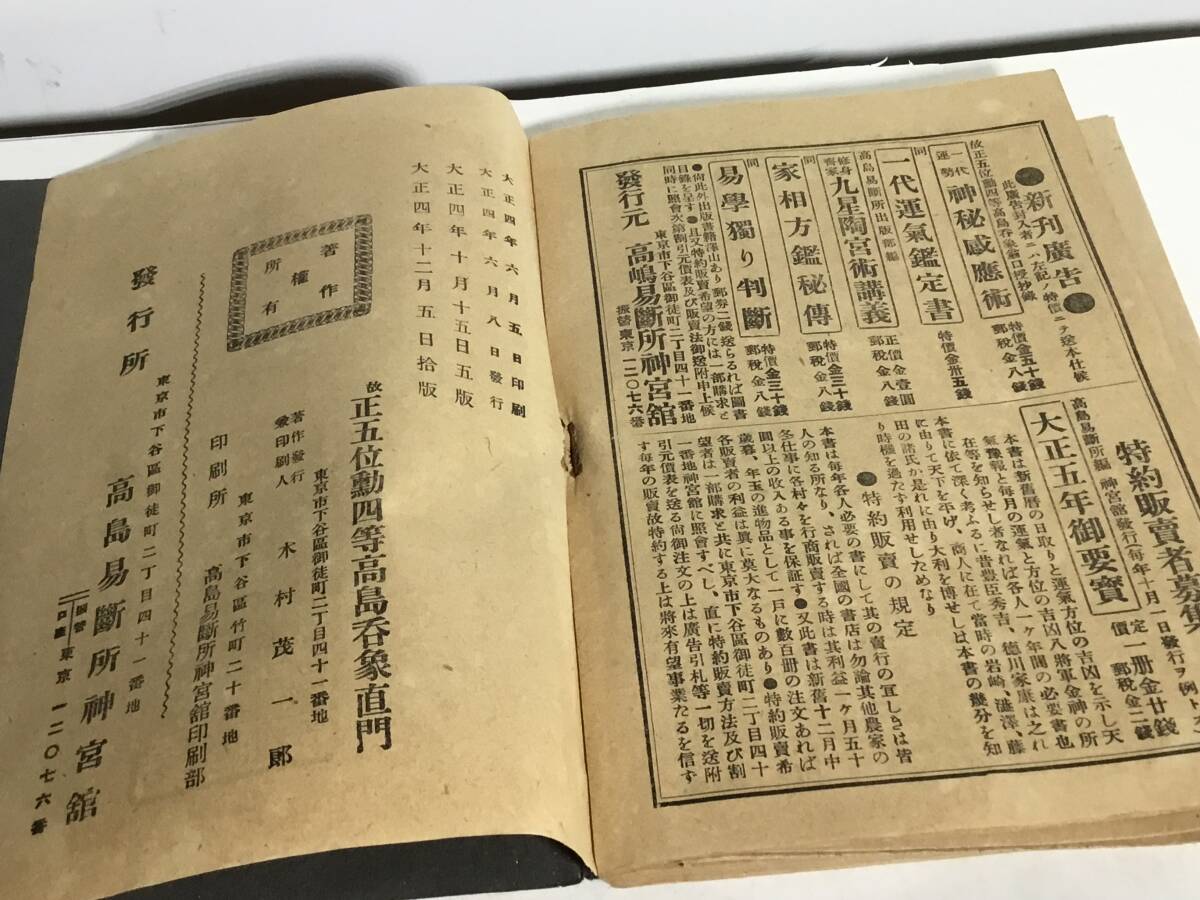 新刊廣告
此廣告封入者ニハ左記ノ特價ニテ送本仕候
故正五位勳四等高島呑象翁口授抄錄
一代運勢
神秘感應術
特價金五十錢
郵稅金八錢
同
一代運氣鑑定書
特價金卅五錢
高島易斷所出版部編
修身齊家
九星陶宮術講義
正價金壹圓
郵稅金八錢
家相方鑑秘傳
特價金三十錢
郵稅金八錢
同
易學獨り判斷
特價金三十錢
郵稅金八錢
●尙此外出版書籍澤山あり郵券二錢送らるれば圖書
目錄を呈す●且又特約販賣希望の方には一部購求と
同時に照會次第割引元價表及び販賣法御送附申上候
東京市下谷區御徒町二丁目四十一番地
發行元 高嶋易斷所神宮舘
振替東京一二〇七六番
特約販賣者募集
高島易斷所編 神宮舘發行(每年十月一日發行ヲ例トス)
大正五年御要寶
定價
一册金廿錢
郵稅金二錢
本書は新舊曆の日取りと運氣方位の吉凶を示し天
氣豫報と每月の運氣と方位の吉凶八將軍金神の所
在等を知らせし者なれば各人一ケ年間の必要書也
本書に依て深く考ふるに昔豐臣秀吉、德川家康は之れ
に由りて天下を平げ、商人に在て當時の岩崎、澁澤、藤
田の諸氏が是れに由り大利を博せしは本書の幾分を知
り時機を過たず利用せしためなり
●特約販賣の規定
本書は每年各人必要の書にして其の賣行の冝しきは皆
人の知る所なり、されば全國の書店は勿論其他農家の
冬仕事に各村々を行商販賣する時は其利益一ケ月五十
圓以上の收入ある事を保証す●又此書は新舊十二月中
歲暮、年玉の進物品として一戶に數百册の注文あれば
各販賣者の利益は異に莫大なるものあり●特約販賣希
望者は一部購求と共に東京市下谷區御徒町二丁目四十
一番地神宮舘に照會すべし、直に特約販賣方法及び割
引元價表を送る尙御注文の上は廣告引札等一切を送附
す每年の販賣故特約する上は將來有望事業たるを信す
大正四年六月五日印刷
大正四年六月八日發行
大正四年十月十五日五版
大正四年十二月五日拾版
著作
權
所有
故正五位勳四等高島呑象直門
東京市下谷區御徒町二丁目四十一番地
著作發行
兼印刷人
木村茂一郞
東京市下谷區竹町二十番地
印刷所 高島易斷所神宮舘印刷部
東京市下谷區御徒町二丁目四十一番地
發行所 高島易斷所神宮舘
振替口座東京一二〇七六番